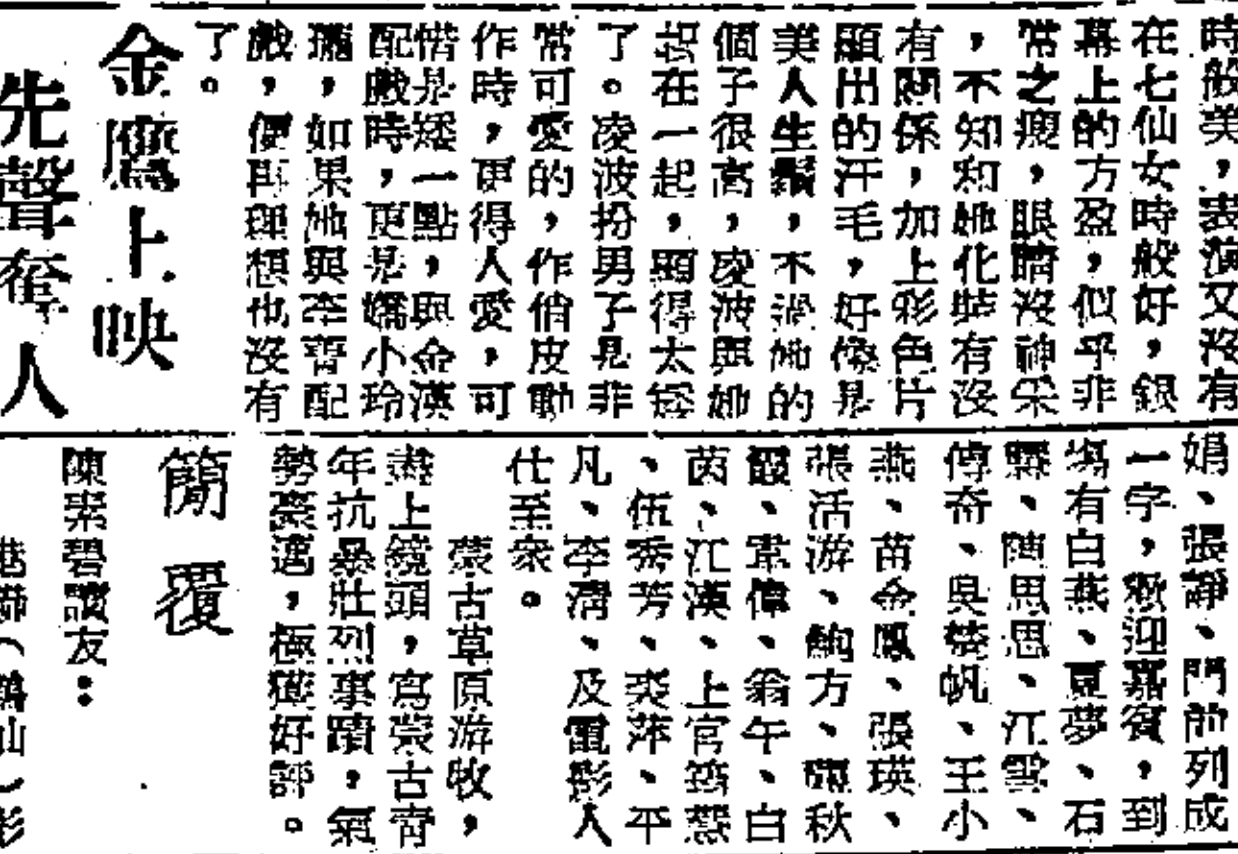 時般美，表演又沒有
在七仙女時般好，銀
幕上的方盈，似乎非
常之瘦，眼睛沒神采
，不知和她化裝有沒
有關係，加上彩色片
顯出的汗毛，好像是
美人生鬚，不過她的
個子很高，凌波與她
站在一起，顯得太矮
了。凌波扮男子是非
常可愛的，作俏皮動
作時，更得人愛，可
惜是矮一點，與金漢
配戲時，更是嬌小玲
瓏，如果她與李菁配
戲，便再理想也沒有
了。
金鷹上映
先聲奪人
娟、張靜、門前列成
一字，歡迎嘉賓，到
場有白燕、夏夢、石
慧、陳思思、江雪、
傅奇、吳楚帆、王小
燕、苗金鳳、張瑛、
張活游、鮑方、龍秋
霞、韋偉、翁午、白
茵、江漢、上官筠慧
、伍秀芳、裘萍、平
凡、李清、及電影人
仕至衆。
蒙古草原游牧，
盡上鏡頭，寫蒙古青
年抗暴壯烈事蹟，氣
勢豪邁，極獲好評。
簡覆
陳碧讀友：
港聯（鶴仙）影